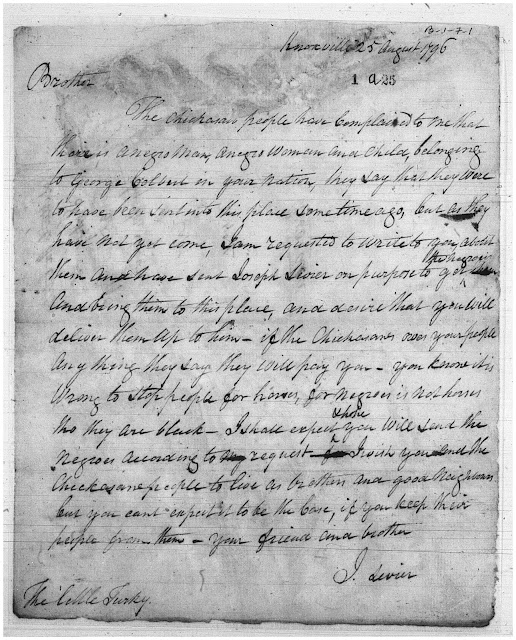 B-1-7-1
Knoxville 25 August 1796
1 a 25
Brother
The Chickasaws people have Complained to me that
there is a negro Man, a negro Woman and Child, belonging
to George Colbert in your nation, they say that they were
to have been sent into this place some time ago, but as they
have not yet come, I am requested to write to you, about
them and have sent Joseph Sevier on purpose to get the negroes
And bring them to this place, and desire that you will
deliver them up to him – if the Chickasaws owes your people
any thing they say they will pay you – you know it is
wrong to stop people for horses, for negroes is not horses
tho they are black – I shall expect you will send the
negroes according to my request – I wish you and the
Chickasaws people to live as brothers and good neighbours
but you cant expect it to be the Case, if you keep their
people from them – your friend and brother
J. Sevier
The Little Turky.